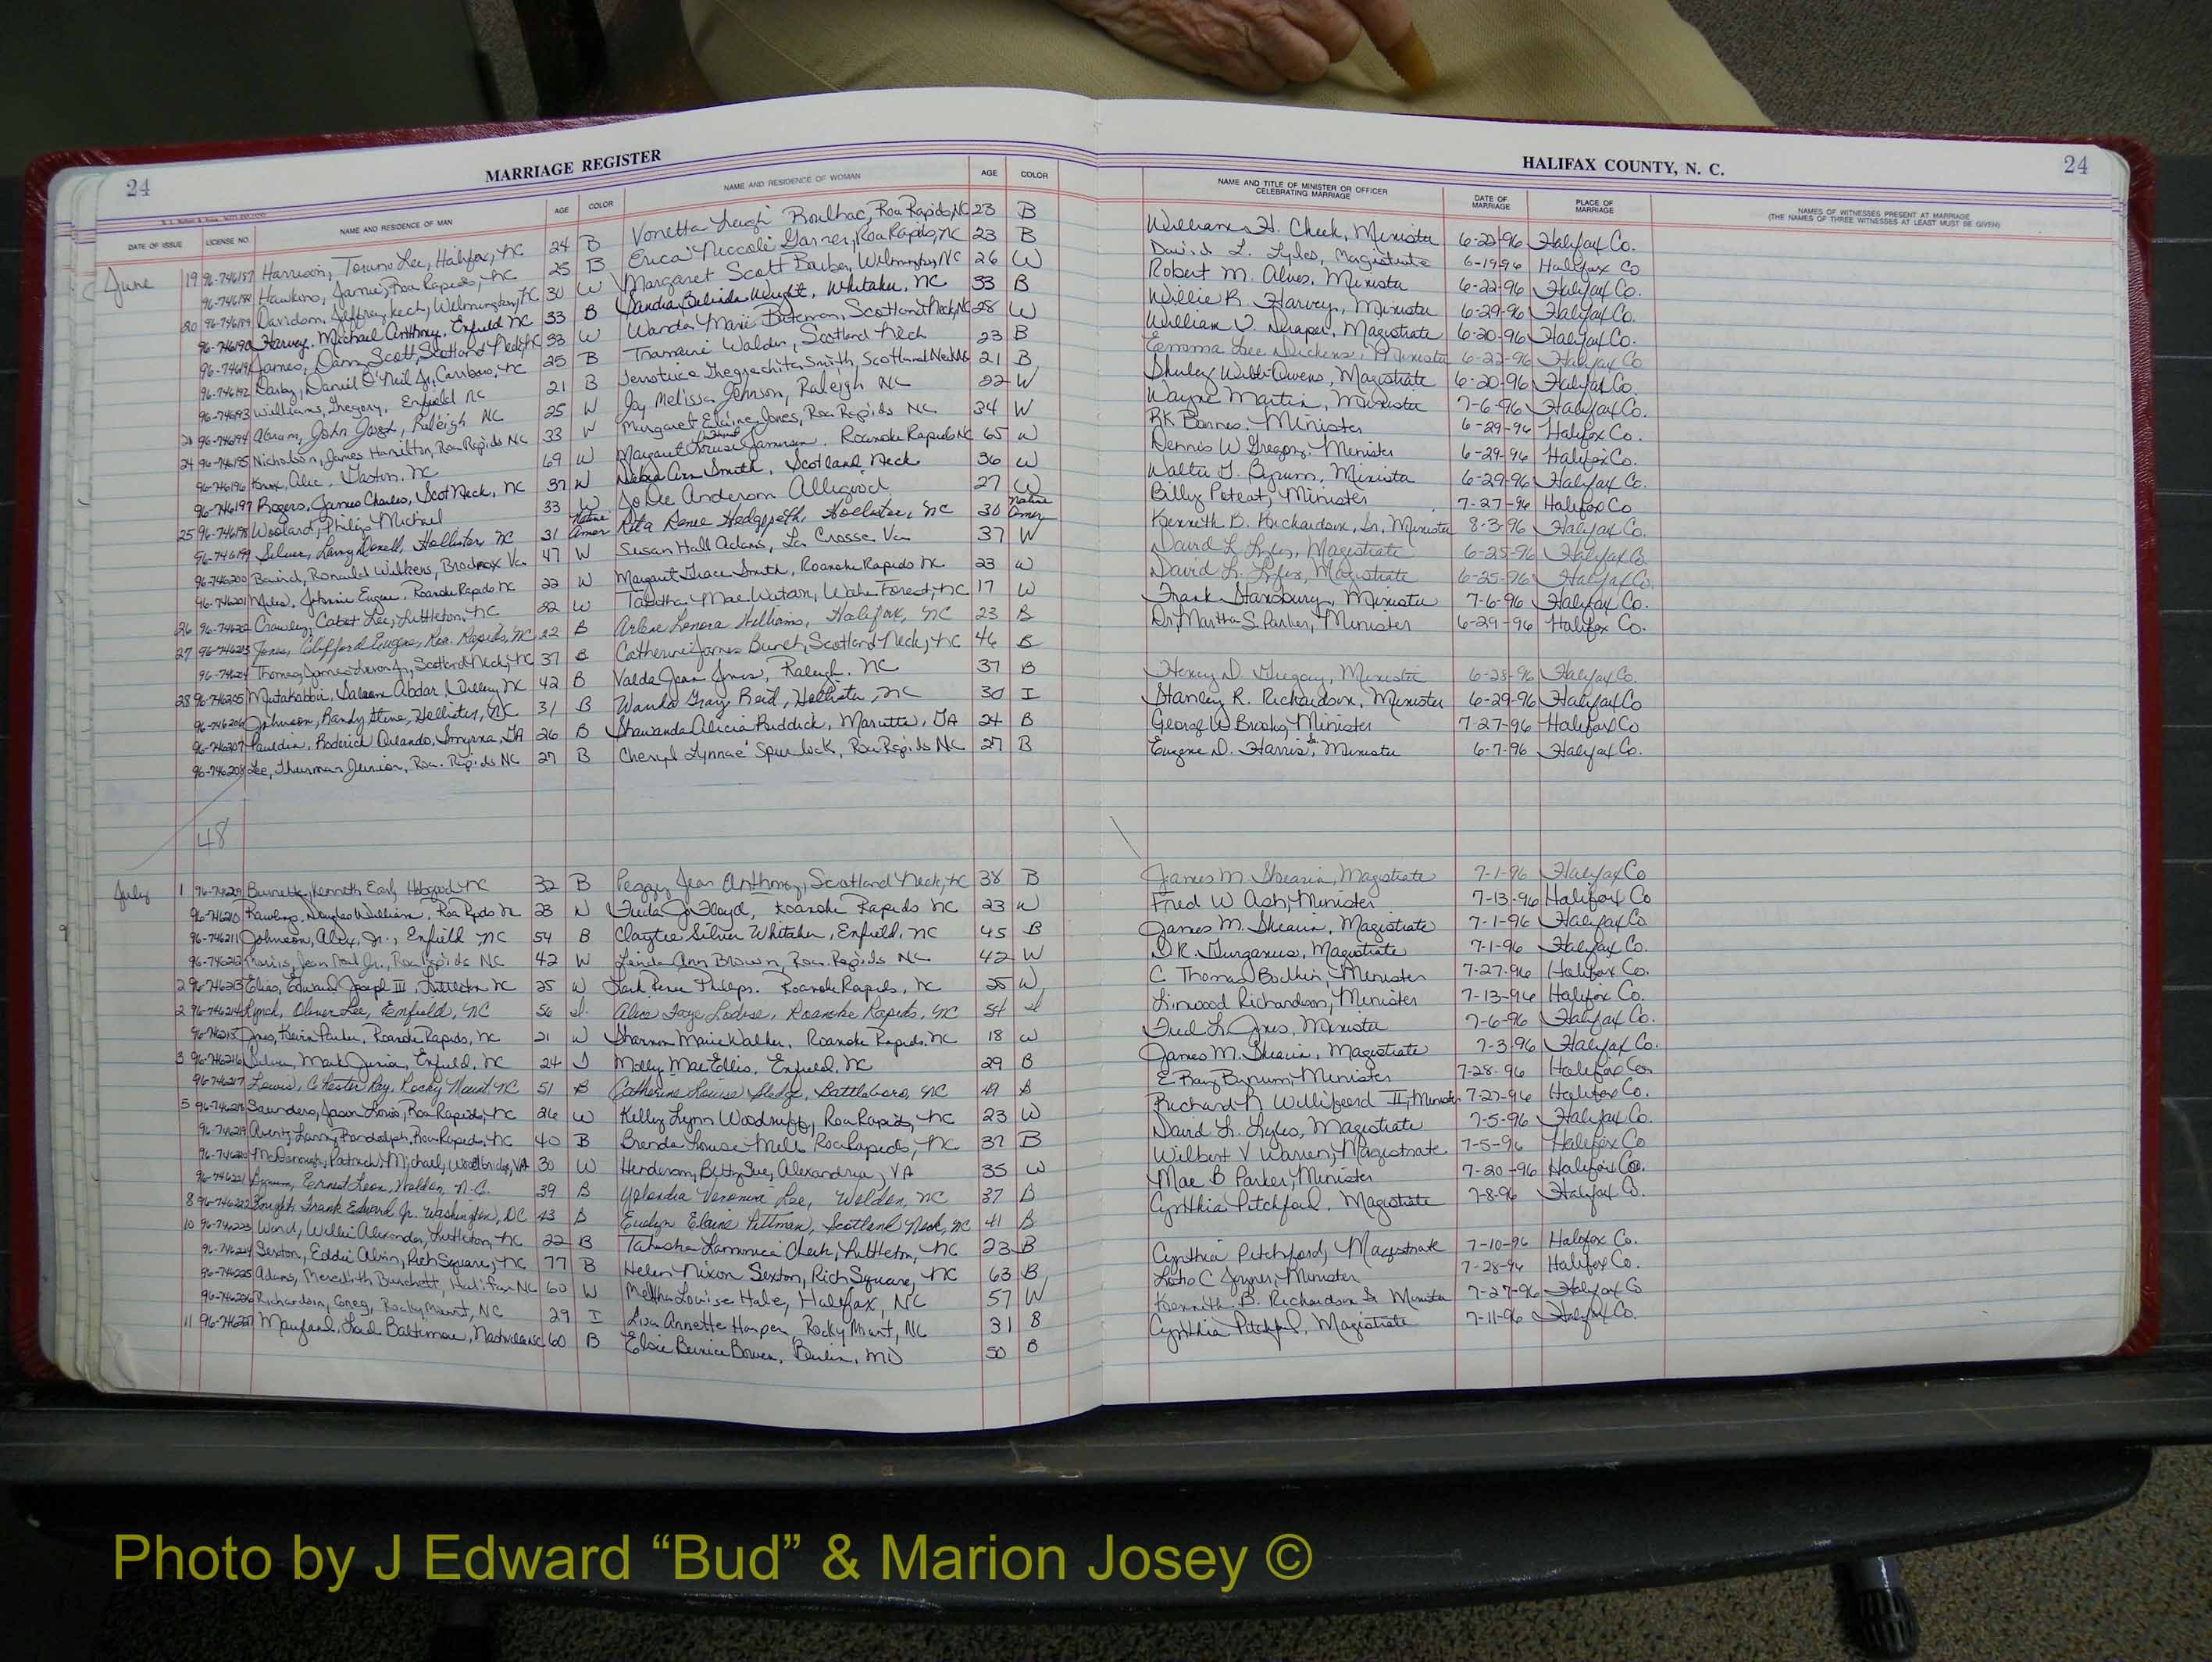 24 MARRIAGE REGISTER HALIFAX COUNTY, N. C. 24
DATE OF ISSUE LICENSE NO. NAME AND RESIDENCE OF MAN AGE COLOR NAME AND RESIDENCE OF WOMAN AGE COLOR NAME AND TITLE OF MINISTER OR OFFICER CELEBRATING MARRIAGE DATE OF MARRIAGE PLACE OF MARRIAGE NAMES OF WITNESSES PRESENT AT MARRIAGE (THE NAMES OF THREE WITNESSES AT LEAST MUST BE GIVEN)
June 19 96-746187 Harrison, Lee, Halifax, NC 24 B Vonetta Leigh Boulhac, Roa Rapids, NC 23 B William H. Cheek, Minister 6-22-96 Halifax Co.
96-746188 Hawkins, Jamie, Roa Rapids, NC 25 B Erica Niccoli Garner, Roa Rapids, NC 23 B David L. Lyles, Magistrate 6-19-96 Halifax Co
20 96-746189 Davidson, Jeffrey Kech, Wilmington, NC 30 W Margaret Scott Barber, Wilmington, NC 26 W Robert M. Alves, Minister 6-22-96 Halifax Co.
96-746190 Harvey, Michael Anthony, Enfield NC 33 B Sandra Belinda Wright, Whitaker, NC 33 B Willie R. Harvey, Minister 6-29-96 Halifax Co.
96-746191 James, Danny Scott, Scotland Neck, NC 33 W Wanda Marie Bateman, Scotland Neck, NC 28 W William D. Draper, Magistrate 6-20-96 Halifax Co.
96-746192 Darby, Daniel O'Neil Jr, Carrboro, NC 25 B Tramaine Walden, Scotland Neck 23 B Emma Lee Dickens, Minister 6-22-96 Halifax Co
96-746193 Williams, Gregory, Enfield NC 21 B Smith, Scotland Neck NC 21 B Shirley Webb Owens, Magistrate 6-20-96 Halifax Co.
96-746194 Abram, John Joseph, Raleigh NC 25 W Joy Melissa Johnson, Raleigh NC 22 W Wayne Martin, Minister 7-6-96 Halifax Co.
24 96-746195 Nicholson, James Hamilton, Roa Rapids NC 33 W Margaret Elaine Jones, Roa Rapids NC 34 W RK Barnes, Minister 6-29-96 Halifax Co.
96-746196 Knox, Alic, Gaston, NC 69 W Margaret Louise Jameson, Roanoke Rapids NC 65 W Dennis W Gregory, Minister 6-29-96 Halifax Co.
96-746197 Rogers, James Charles, Scot Neck, NC 37 W Debra Ann Smith, Scotland Neck 36 W Walter G. Bynum, Minister 6-29-96 Halifax Co.
25 96-746198 Woolard, Philip Michael 33 W Jo Dee Anderson Alligood 27 W Billy Poteat, Minister 7-27-96 Halifax Co
96-746199 Silver, Larry Donell, Hollister, NC 31 Native Amer Rita Renee Hedgepeth, Hollister, NC 30 Native Amer Kenneth B. Richardson, Sr., Minister 8-3-96 Halifax Co.
96-746200 Baird, Ronald Wilkens, Brodnax Va. 47 W Susan Hall Adams, La Crosse Va 37 W David L Lyles, Magistrate 6-25-96 Halifax Co
96-746201 Miles, Johnnie Eugene, Roanoke Rapids NC 22 W Margaret Grace Smith, Roanoke Rapids NC 23 W David L. Lyles, Magistrate 6-25-96 Halifax Co.
26 96-746202 Crawley, Cabot Lee, Littleton, NC 22 W Tabitha Mae Watson, Wake Forest, NC 17 W Frank Stansbury, Minister 7-6-96 Halifax Co.
27 96-746203 Jones, Clifford Eugene, Roa. Rapids, NC 22 B Arlene Lenora Williams, Halifax, NC 23 B Dr. Martha S. Parker, Minister 6-29-96 Halifax Co.
96-746204 Thomas, James Jr, Scotland Neck, NC 37 B Catherine James Burch, Scotland Neck, NC 46 B
28 96-746205 Mutakabbir, Abdar, NC 42 B Valda Jean Jones, Raleigh, NC 37 B Henry D. Gregory, Minister 6-28-96 Halifax Co.
96-746206 Johnson, Randy Steve, Hollister, NC 31 B Wanda Gray Reid, Hollister, NC 30 I Stanley R. Richardson, Minister 6-29-96 Halifax Co
96-746207 Pauldin, Roderick Orlando, Smyrna, GA 26 B Shawanda Alicia Ruddick, Marietta, GA 24 B George W Brooks, Minister 7-27-96 Halifax Co
96-746208 Lee, Thurman Junior, Roa. Rapids NC 27 B Cheryl Lynnae' Spurlock, Roa Rapids NC 27 B Eugene D. Harris, Minister 6-7-96 Halifax Co.
48
July 1 96-746209 Burnette, Kenneth Earl, Hobgood NC 32 B Peggy Jean Anthony, Scotland Neck, NC 38 B James M. Shearin, Magistrate 7-1-96 Halifax Co
96-746210 Rawlings, Douglas William, Roa Rapids NC 23 W Freda Jo Floyd, Roanoke Rapids NC 23 W Fred W Ash, Minister 7-13-96 Halifax Co
96-746211 Johnson, Alex, Jr., Enfield NC 54 B Claytie Silver Whitaker, Enfield, NC 45 B James M. Shearin, Magistrate 7-1-96 Halifax Co
96-746212 Jr., Roa Rapids NC 42 W Linda Ann Brown, Roa. Rapids NC 42 W D.R. Gurganus, Magistrate 7-1-96 Halifax Co.
2 96-746213 Elias, Edward Joseph III, Littleton NC 25 W Renee Phelps, Roanoke Rapids, NC 25 W C Thomas Bodkin, Minister 7-27-96 Halifax Co.
2 96-746214 Lynch, Oliver Lee, Enfield, NC 56 I. Alice Faye Lodise, Roanoke Rapids, NC 54 I Linwood Richardson, Minister 7-13-96 Halifax Co.
96-746215 Jones, Kevin Parker, Roanoke Rapids, NC 21 W Sharron Marie Walker, Roanoke Rapids, NC 18 W Fred L. Jones, Minister 7-6-96 Halifax Co.
3 96-746216 Silver, Mark Junior, Enfield, NC 24 I Molly Mae Ellis, Enfield, NC 29 B James M. Shearin, Magistrate 7-3-96 Halifax Co.
96-746217 Lewis, Chester Ray, Rocky Mount, NC 51 B Catherine Louise Sledge, Battleboro, NC 49 B E Ray Bynum, Minister 7-28-96 Halifax Co
5 96-746218 Saunders, Jason Louis, Roa Rapids, NC 26 W Kelly Lynn Woodruff, Roa Rapids, NC 23 W Richard R Williford II, Minister 7-27-96 Halifax Co.
96-746219 Avent, Larry Randolph, Roa Rapids, NC 40 B Brenda Louise Mills, Roa Rapids, NC 37 B David L. Lyles, Magistrate 7-5-96 Halifax Co.
96-746220 McDonough, Patrick Michael, Woodbridge, VA 30 W Henderson, Betty Sue, Alexandria, VA 35 W Wilbert V Warren, Magistrate 7-5-96 Halifax Co
96-746221 Bynum, Ernest Leon, Weldon, N.C. 39 B Yolandia Veronica Lee, Weldon, NC 37 B Mae B Parker, Minister 7-20-96 Halifax Co.
8 96-746222 Frank Edward Jr. Washington, DC 43 B Evelyn Elaine Pittman, Scotland Neck, NC 41 B Cynthia Pitchford, Magistrate 7-8-96 Halifax Co.
10 96-746223 Ward, Willie Alexander, Littleton, NC 22 B Takesha Lamonica Cheek, Littleton, NC 23 B Cynthia Pitchford, Magistrate 7-10-96 Halifax Co.
96-746224 Sexton, Eddie Alvin, Rich Square, NC 77 B Helen Nixon Sexton, Rich Square, NC 63 B C Joyner, Minister 7-28-96 Halifax Co.
96-746225 Adams, Meredith Burchett, Halifax NC 60 W Louise Hale, Halifax, NC 57 W Kenneth B. Richardson Sr Minister 7-27-96 Halifax Co
96-746226 Richardson, Coneg, Rocky Mount, NC 29 I Lisa Annette Harper, Rocky Mount, NC 31 B Cynthia Pitchford, Magistrate 7-11-96 Halifax Co.
11 96-746227 Baltimore, 60 B Elsie Bernice Bowen, Berlin, MD 50 B
Photo by J Edward “Bud” & Marion Josey ©